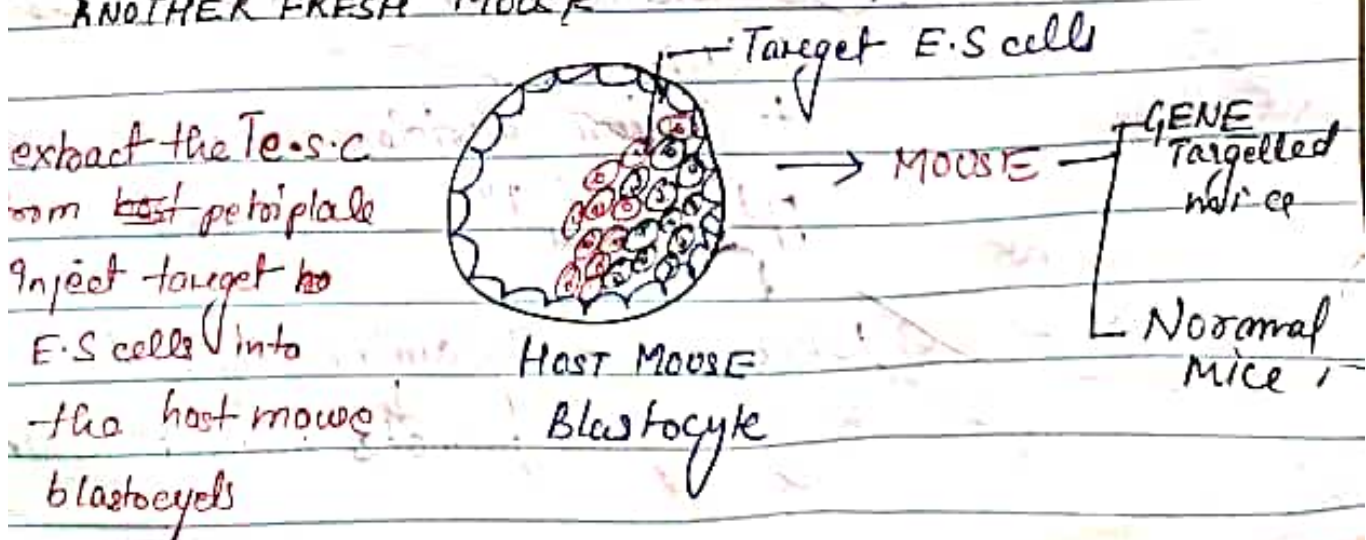 ANOTHER FRESH MOUSE
Target E.S cells
extract the Te.s.c
rom petriplate
Inject target
E.S cells into
the host mouse
blastocyets
HOST MOUSE
Blastocyte
MOUSE
GENE
Targetted
mice
Normal
Mice